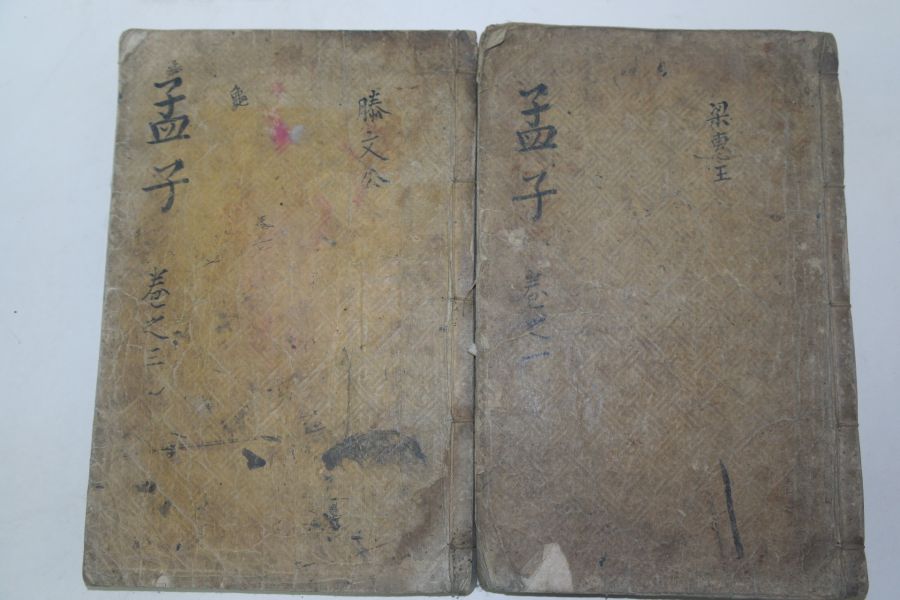 梁惠王
孟子 卷之一
滕文公
龜
孟子 卷之三